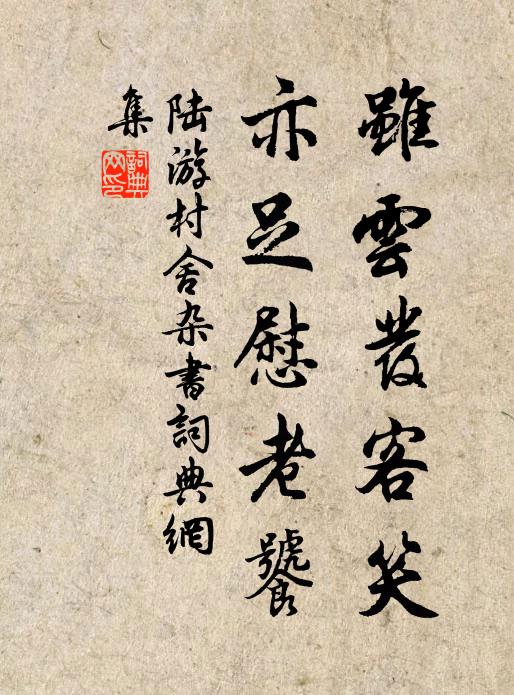 雖雲發客笑
亦足慰老饕
陸游村舍杂書詞典網
集
詞典
网印